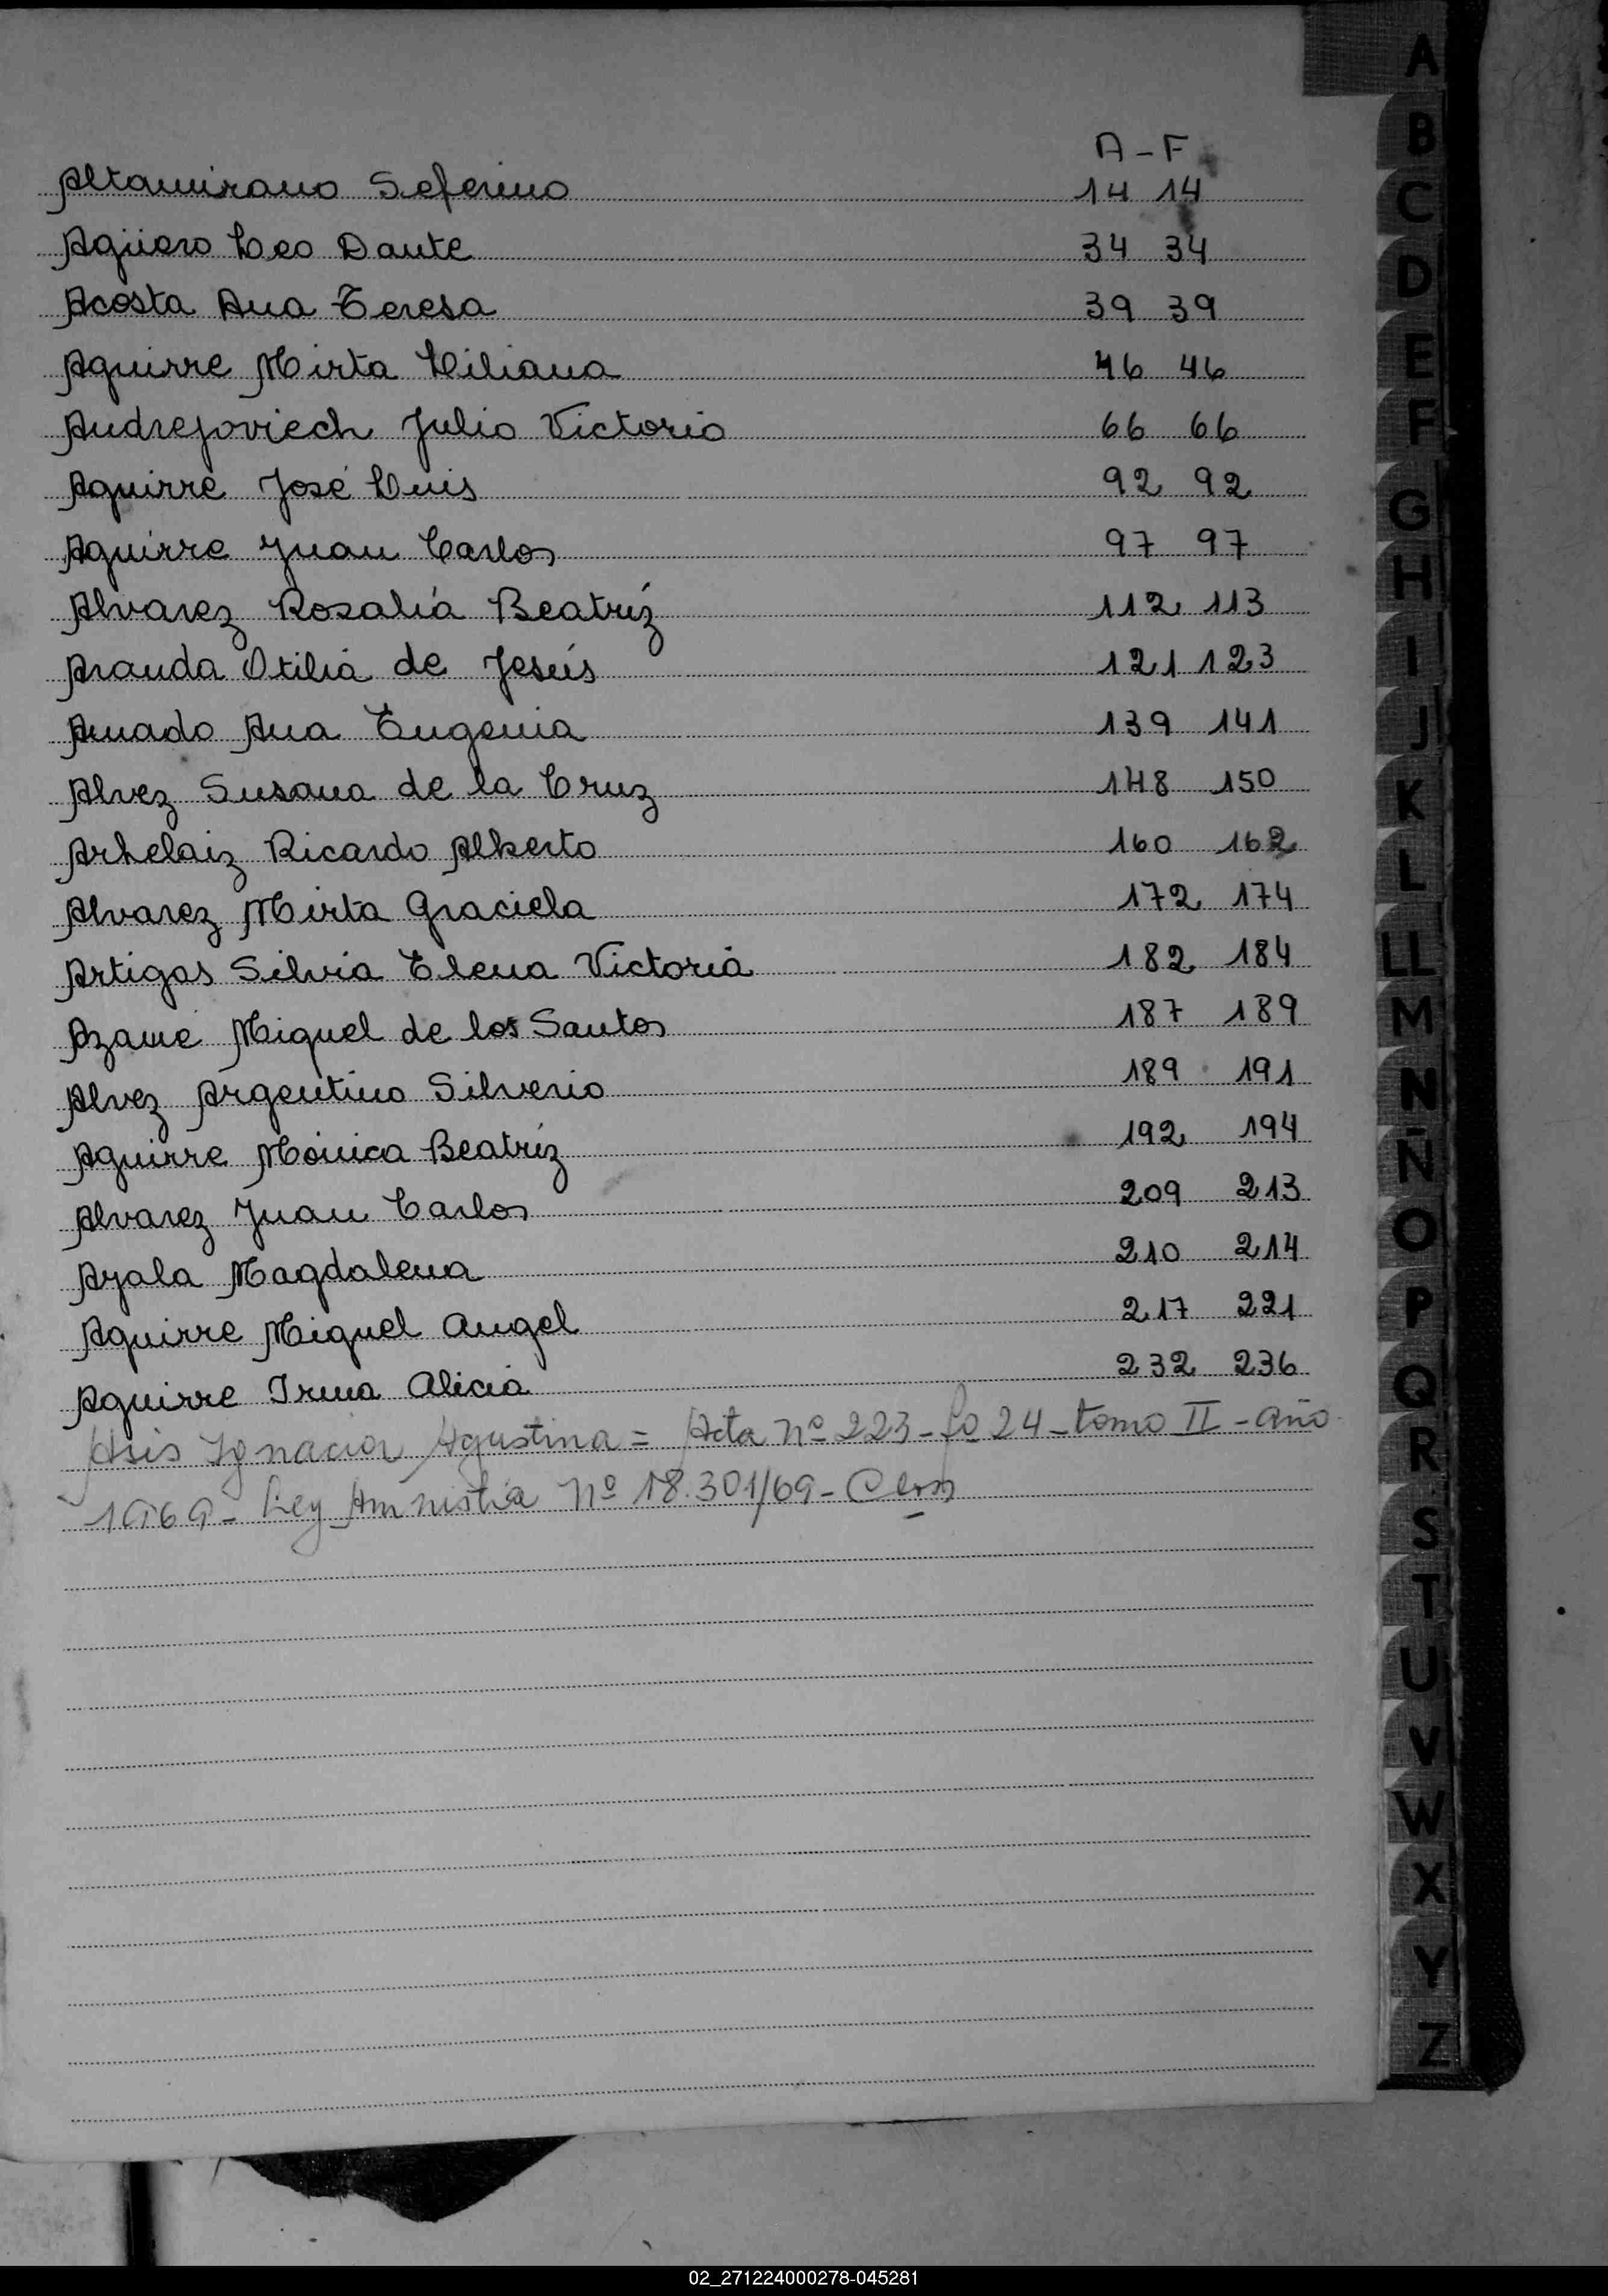 A - F
Altamirano Seferino 14 14
Agüero Leo Dante 34 34
Acosta Ana Teresa 39 39
Aguirre Mirta Liliana 46 46
Andrejoviech Julio Victorio 66 66
Aguirre José Luis 92 92
Aguirre Juan Carlos 97 97
Alvarez Rosalía Beatríz 112 113
Aranda Otilia de Jesús 121 123
Amado Ana Eugenia 139 141
Alvez Susana de la Cruz 148 150
Arhelaiz Ricardo Alberto 160 162
Alvarez Mirta Graciela 172 174
Artigas Silvia Elena Victoria 182 184
Azame Miguel de los Santos 187 189
Alvez Argentino Silverio 189 191
Aguirre Mónica Beatríz 192 194
Alvarez Juan Carlos 209 213
Ayala Magdalena 210 214
Aguirre Miguel Angel 217 221
Aguirre Irma Alicia 232 236
Asis Ignacion Agustina = Acta Nº 223 - fº 24 - tomo II - año
1969 - Ley Amnistía Nº 18.301/69 -
A
B
C
D
E
F
G
H
I
J
K
L
LL
M
N
Ñ
O
P
Q
R
S
T
U
V
W
X
Y
Z
02_271224000278-045281